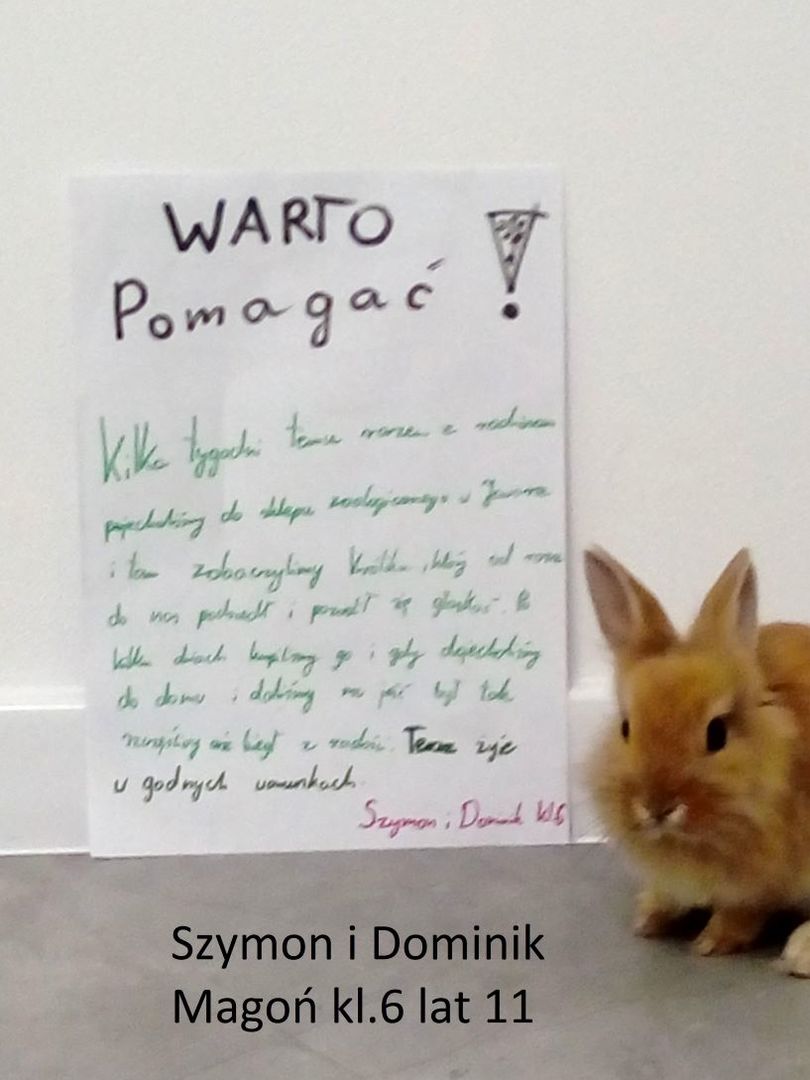 WARTO !
Pomagać
Kilka tygodni temu razem z rodzicami
pojechaliśmy do sklepu zoologicznego w Jaworze
i tam zobaczyliśmy królika, który od razu
do nas podszedł i pozwolił się głaskać. Po
kilku dniach kupiliśmy go i gdy dojechaliśmy
do domu i daliśmy mu jeść był tak
szczęśliwy aż biegł z radości. Teraz żyje
w godnych warunkach.
Szymon i Dominik
Szymon i Dominik
Magoń kl.6 lat 11